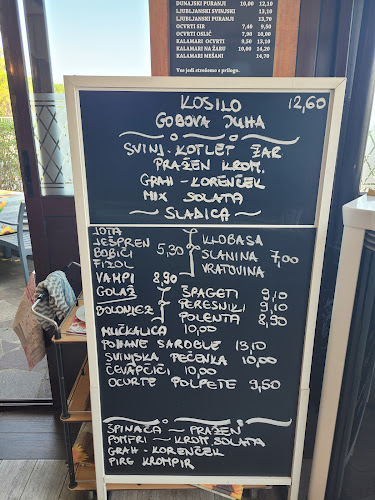 DUNAJSKI PURANJI 10,00 12,10
LJUBLJANSKI SVINJSKI 12,10
LJUBLJANSKI PURANJI 13,70
OCVRTI SIR 7,40 9,50
OCVRTI OSLIČ 7,90 10,00
KALAMARI OCVRTI 9,50 13,10
KALAMARI NA ŽARU 10,00 14,20
KALAMARI MEŠANI 14,70
Vse jedi strežemo s prilogo.
KOSILO 12,60
GOBOVA JUHA
SVINJ. KOTLET ŽAR
PRAŽEN KROM.
GRAH - KORENČEK
MIX SOLATA
~ SLADICA ~
JOTA
JEŠPREN
BOBIČI
FIŽOL
5,30
KLOBASA
SLANINA
VRATOVINA
7,00
VAMPI 8,90
GOLAŽ
BOLONJEZ
ŠPAGETI 9,10
PERESNIKI 9,10
POLENTA 8,90
MUČKALICA 10,00
POHANE SARDELE 13,10
SVINJSKA PEČENKA 10,00
ČEVAPČIČI 10,00
OCVRTE POLPETE 9,50
ŠPINAČA - PRAŽEN
POMFRI - KROM. SOLATA
GRAH - KORENČEK
PIRE KROMPIR